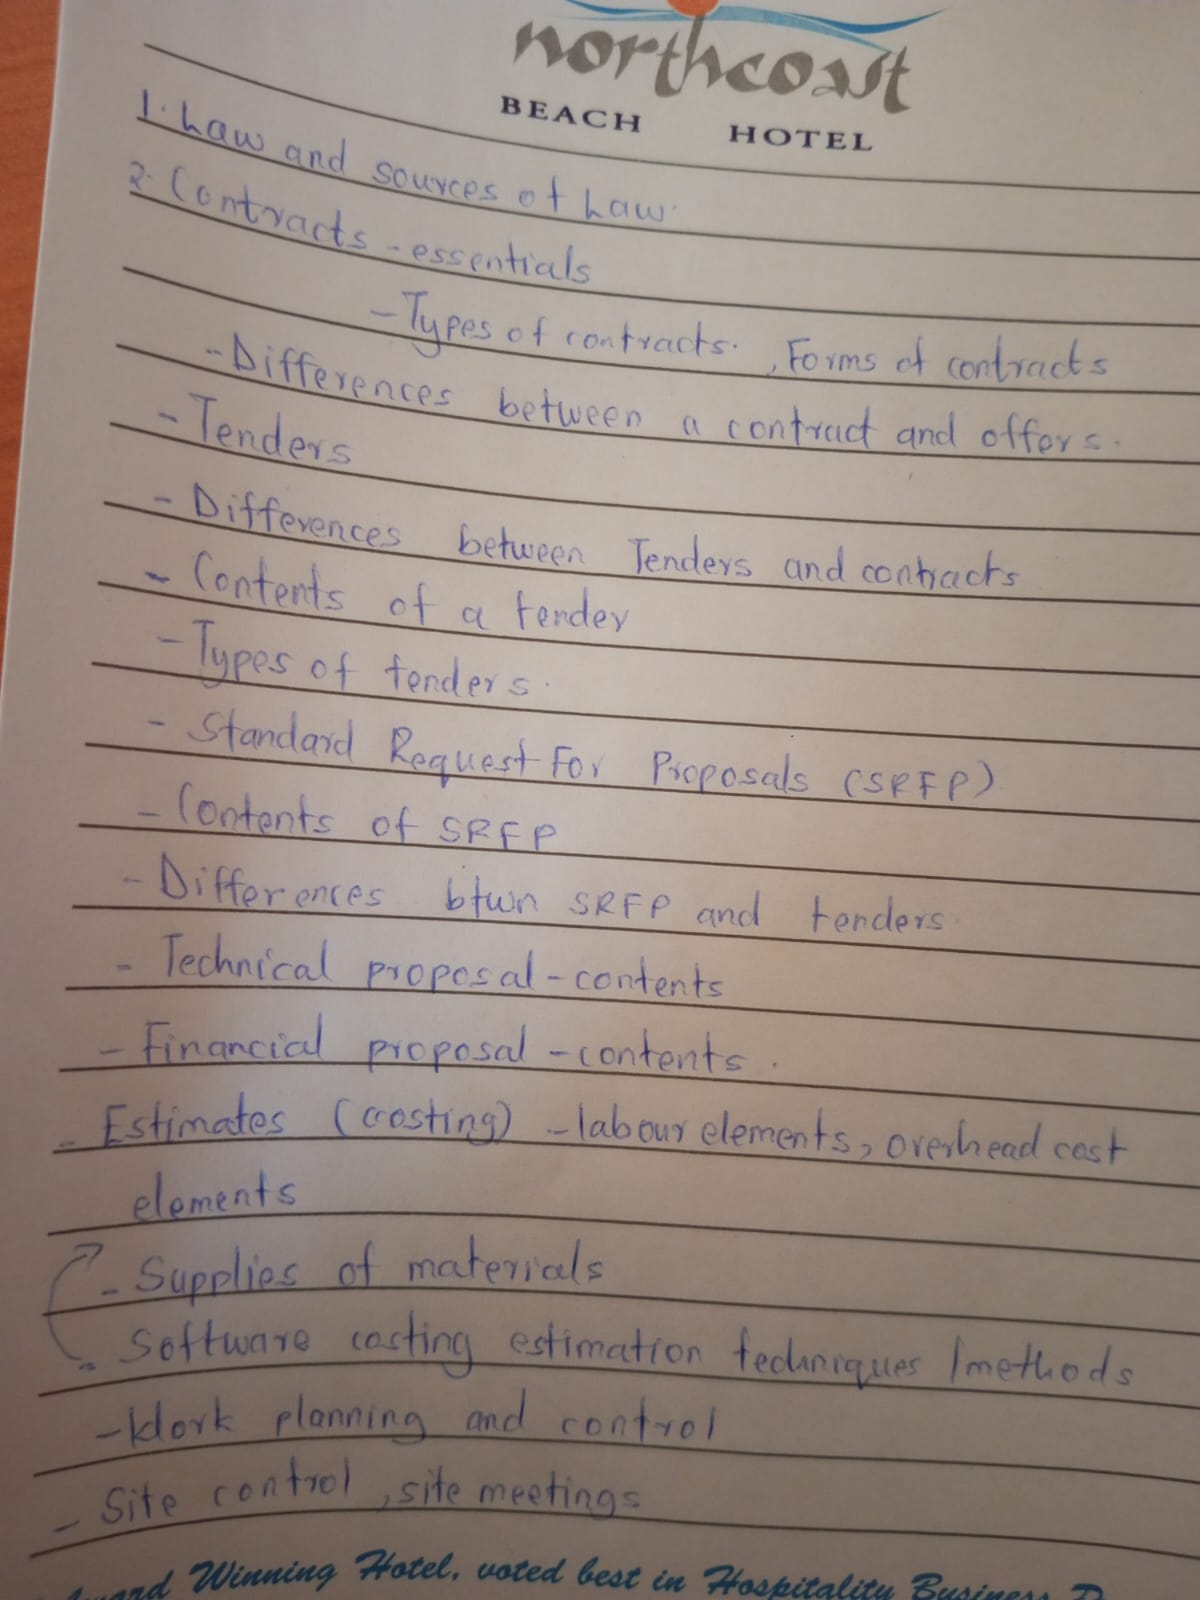 northcoast
BEACH HOTEL
1. Law and sources of Law.
2. Contracts - essentials
- Types of contracts. , Forms of contracts
- Differences between a contract and offers.
- Tenders
- Differences between Tenders and contracts
- Contents of a tender
- Types of tenders.
- Standard Request For Proposals (SRFP)
- Contents of SRFP
- Differences btwn SRFP and tenders
- Technical proposal - contents
- Financial proposal - contents.
- Estimates (costing) - labour elements, overhead cost
elements
- Supplies of materials
- Software costing estimation techniques /methods
- Work planning and control
- Site control, site meetings
Award Winning Hotel, voted best in Hospitality Business